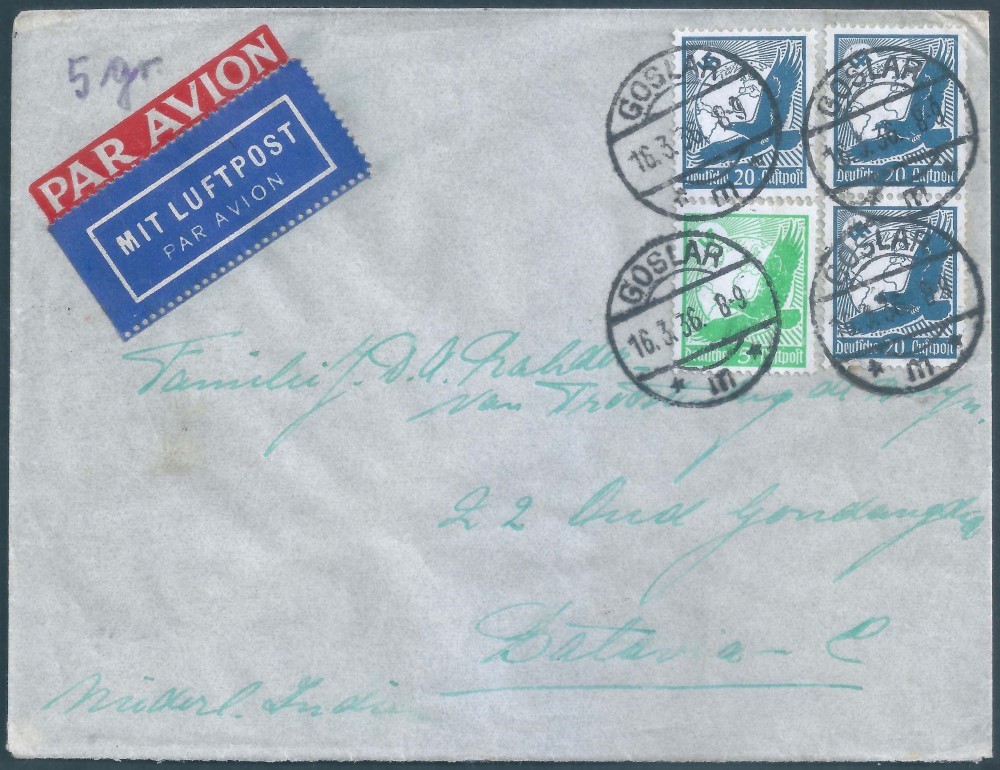 5 gr.
PAR AVION
MIT LUFTPOST
PAR AVION
GOSLAR
16.3.36. 8-9
* m *
Deutsche 20 Luftpost
GOSLAR
16.3.36. 8-9
* m *
Deutsche 20 Luftpost
GOSLAR
16.3.36. 8-9
* m *
Deutsche 5 Luftpost
GOSLAR
3.36. 8-9
* m *
Deutsche 20 Luftpost
Familie
van
22 Oud Gondangdia
Batavia - C
Niederl. Indien